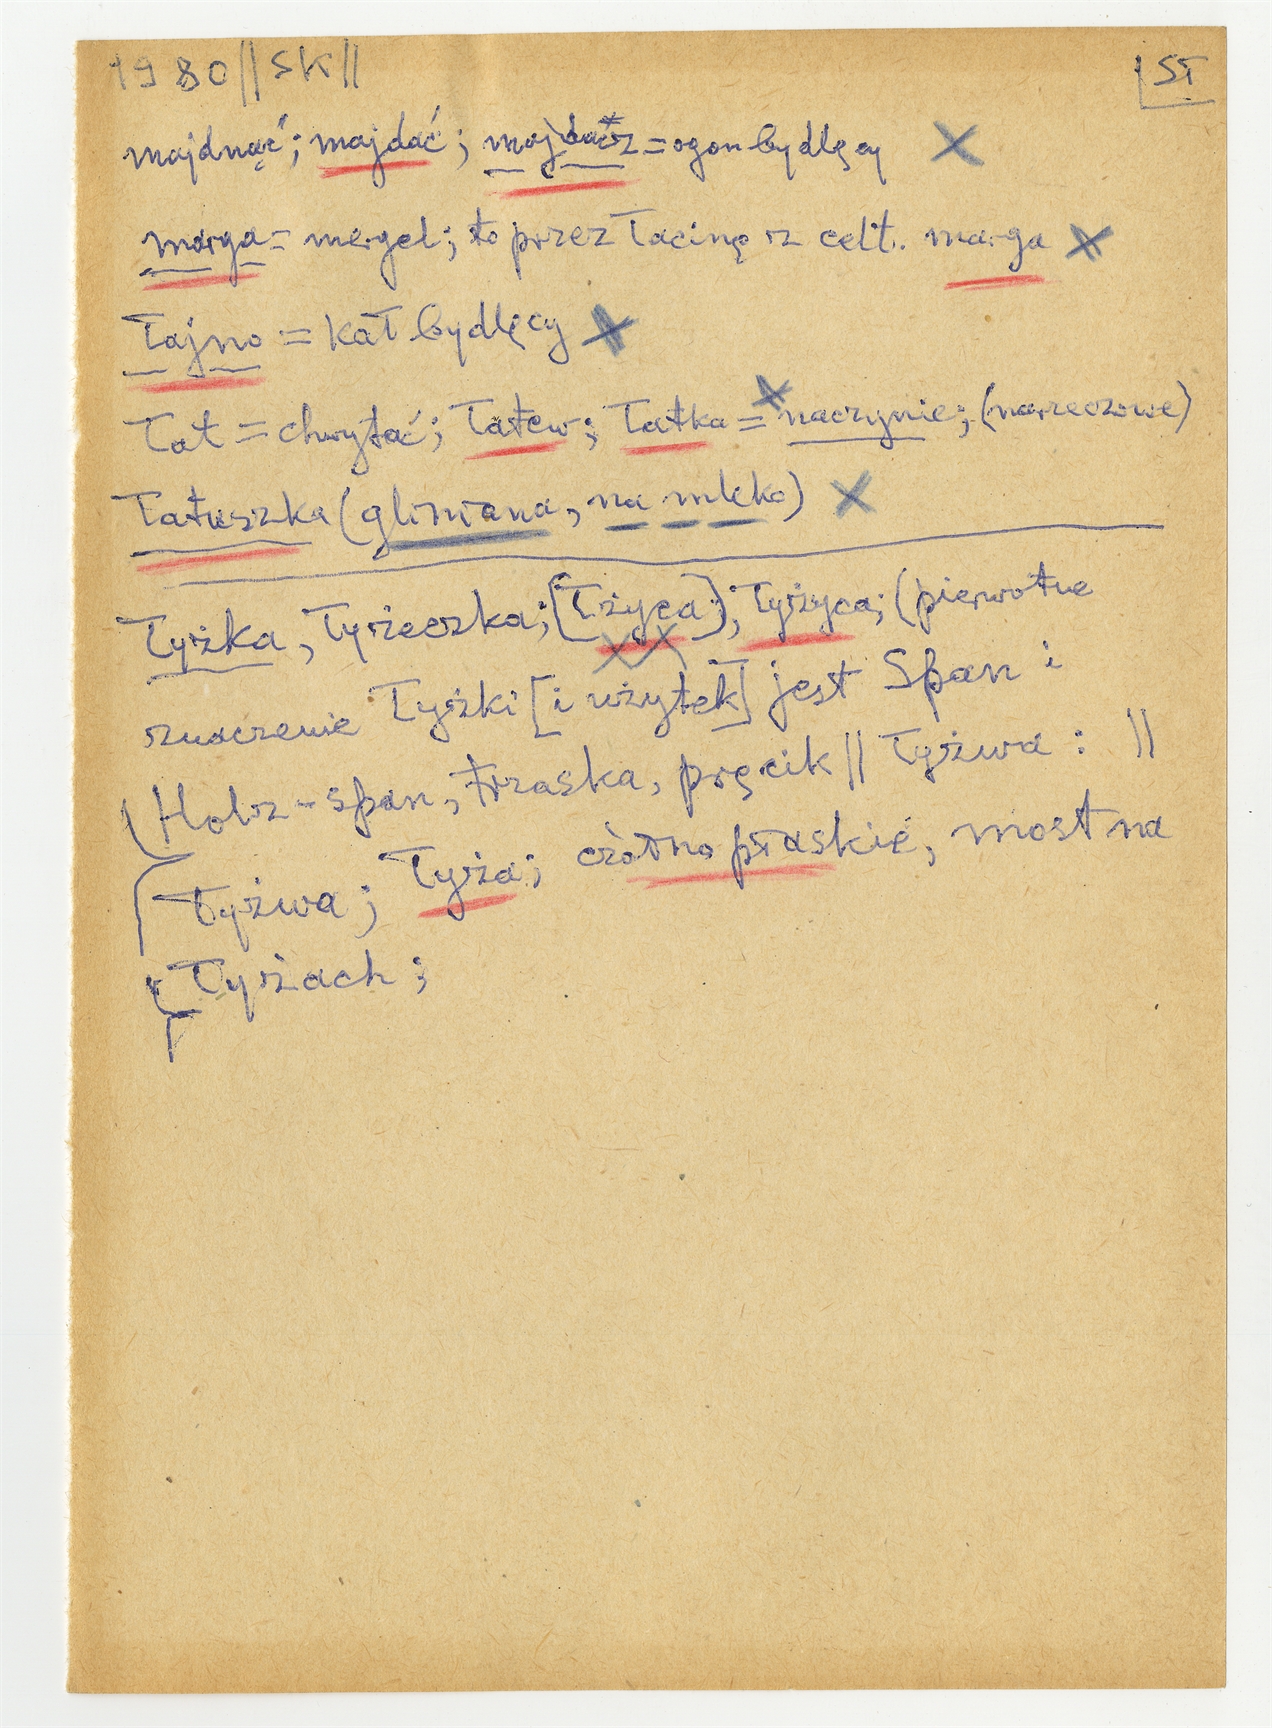 1980 || SK || SŁ
majdnąć; majdać; majdacz = ogon bydlęcy X
marga = mergel; to przez łacinę z celt. marga X
łajno = kał bydlęcy X
łat = chwytać; łatew; łatka = naczynie; (narzeczowe)
łatuszka (gliniana, na mleko) X
łyżka, łyżeczka; [łżyca]; łyżyca; (pierwotne
znaczenie łyżki [i użytek] jest Span i
Holz-span, trzaska, pręcik || łyżwa : ||
łyżwa; łyża; czółno płaskie, most na
łyżach;